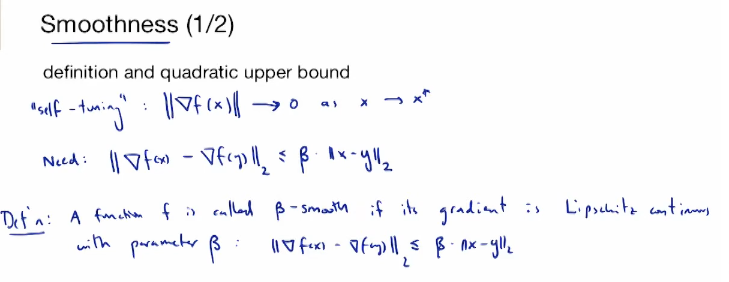 Smoothness (1/2)
definition and quadratic upper bound
"self-tuning" : ||∇f(x)|| → 0 as x → x*
Need: ||∇f(x) - ∇f(y)||₂ ≤ β·||x-y||₂
Def'n: A function f is called β-smooth if its gradient is Lipschitz continuous
with parameter β : ||∇f(x) - ∇f(y)||₂ ≤ β·||x-y||₂